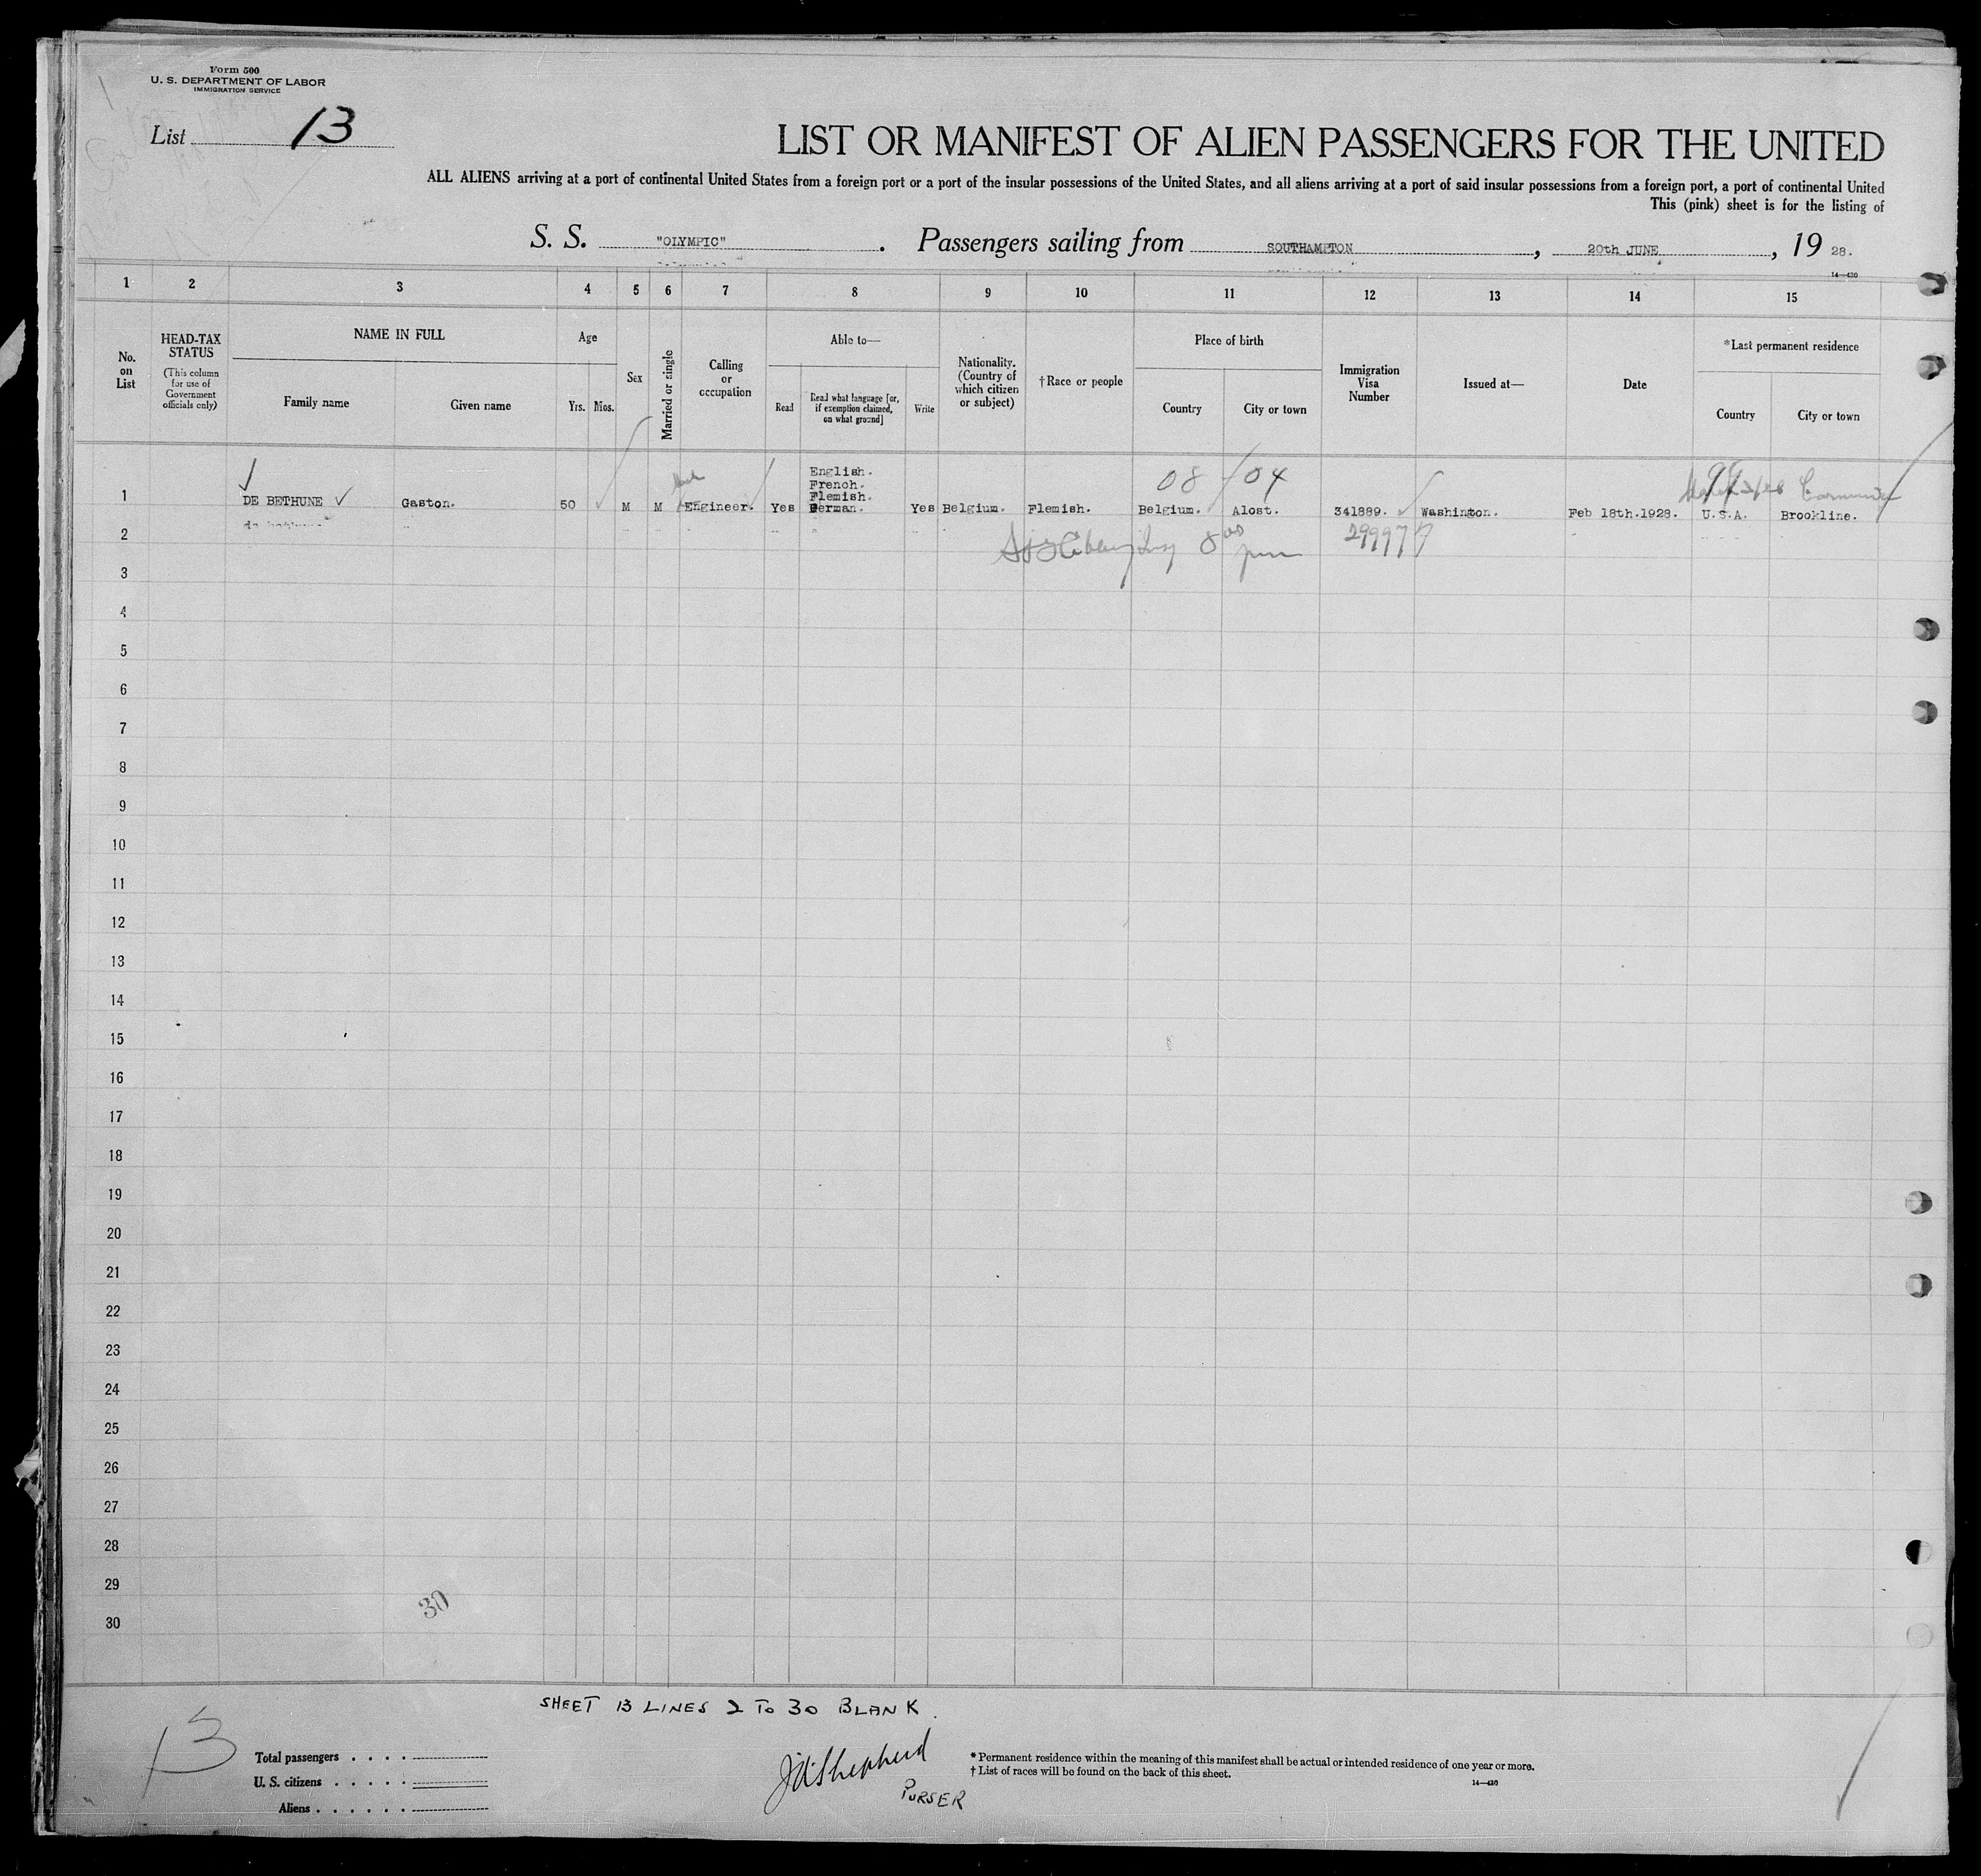 Form 500
U. S. DEPARTMENT OF LABOR
IMMIGRATION SERVICE
List 13
LIST OR MANIFEST OF ALIEN PASSENGERS FOR THE UNITED
ALL ALIENS arriving at a port of continental United States from a foreign port or a port of the insular possessions of the United States, and all aliens arriving at a port of said insular possessions from a foreign port, a port of continental United
This (pink) sheet is for the listing of
S. S. "OLYMPIC". Passengers sailing from SOUTHAMPTON, 20th JUNE, 19 28.
14—430
1 2 3 4 5 6 7 8 9 10 11 12 13 14 15
No. on List
HEAD-TAX STATUS
(This column for use of Government officials only)
NAME IN FULL
Family name
Given name
Age
Yrs. Mos.
Sex
Married or single
Calling or occupation
Able to—
Read
Read what language [or, if exemption claimed, on what ground]
Write
Nationality. (Country of which citizen or subject)
†Race or people
Place of birth
Country
City or town
Immigration Visa Number
Issued at—
Date
*Last permanent residence
Country
City or town
08 04 99
English.
French.
Flemish.
1 DE BETHUNE Gaston. 50 M M Engineer. Yes German. Yes Belgium. Flemish. Belgium. Alost. 341889. Washinton. Feb 18th.1928. U.S.A. Brookline.
2 29997
3
4
5
6
7
8
9
10
11
12
13
14
15
16
17
18
19
20
21
22
23
24
25
26
27
28
29
30
30
SHEET 13 LINES 2 TO 30 BLANK.
13
Total passengers
U. S. citizens
Aliens
Shepherd
PURSER
* Permanent residence within the meaning of this manifest shall be actual or intended residence of one year or more.
† List of races will be found on the back of this sheet.
14—430